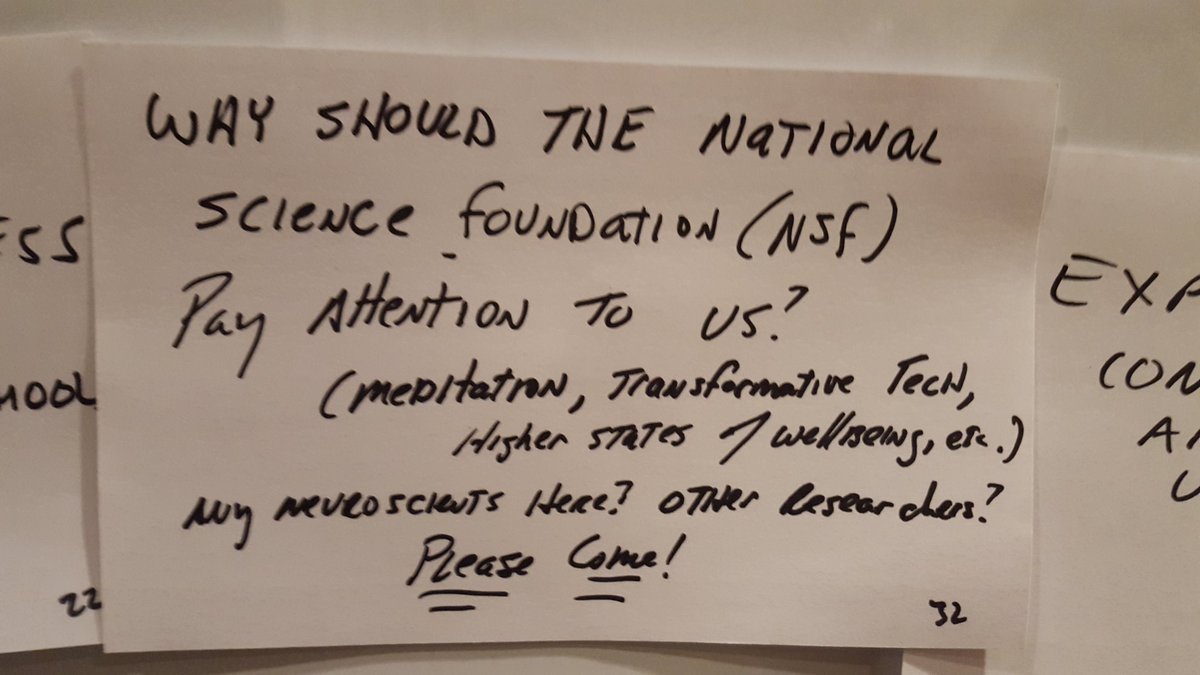 WHY SHOULD THE NATIONAL
SCIENCE FOUNDATION (NSF)
PAY ATTENTION TO US?
(MEDITATION, TRANSFORMATIVE TECH,
HIGHER STATES OF WELLBEING, ETC.)
ANY NEUROSCIENTS HERE? OTHER RESEARCHERS?
PLEASE COME!
32
ESS
HOOL
22
EXP
CON
A
U